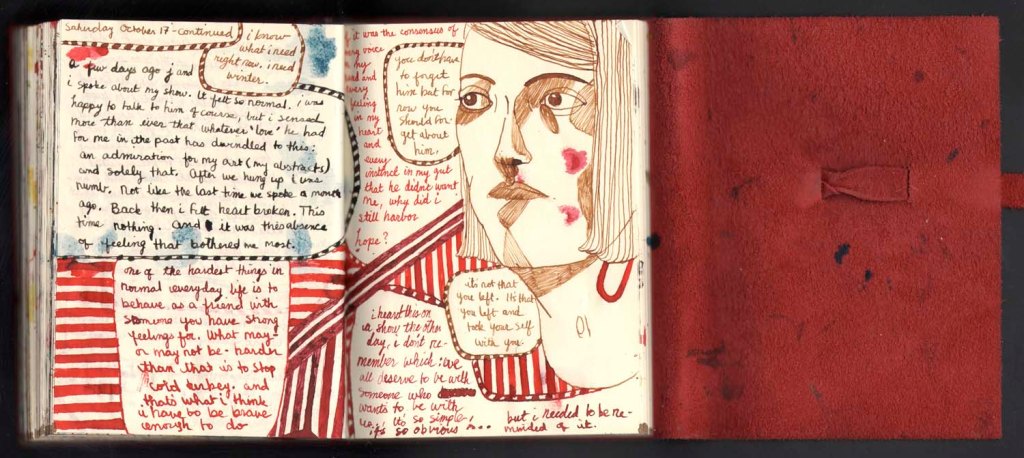 Saturday October 17 - continued
i know
what i need
right now. i need
winter.
a few days ago j and
i spoke about my show. it felt so normal. i was
happy to talk to him of course, but i sensed
more than ever that whatever 'love' he had
for me in the past has dwindled to this:
an admiration for my art (my abstracts)
and solely that. After we hung up i was
numb. Not like the last time we spoke a month
ago. Back then i felt heart broken. This
time nothing. and it was the absence
of feeling that bothered me most.
one of the hardest things in
normal everyday life is to
behave as a friend with
someone you have strong
feelings for. What may-
or may not be - harder
than that is to stop
cold turkey. and
that's what i think
i have to be brave
enough to do
it was the consensus of
voice
in my
head and
every
feeling
in my
heart
and
every
instinct in my gut
that he didn't want
me, why did i
still harbor
hope?
you don't have
to forget
him but for
now you
should for-
get about
him.
it's not that
you left. It's that
you left and
took your self
with you.
i heard this on
a show the other
day, i don't re-
member which: we
all deserve to be with
someone who
wants to be with
us. it's so simple,
it's so obvious ...
but i needed to be re-
minded of it.